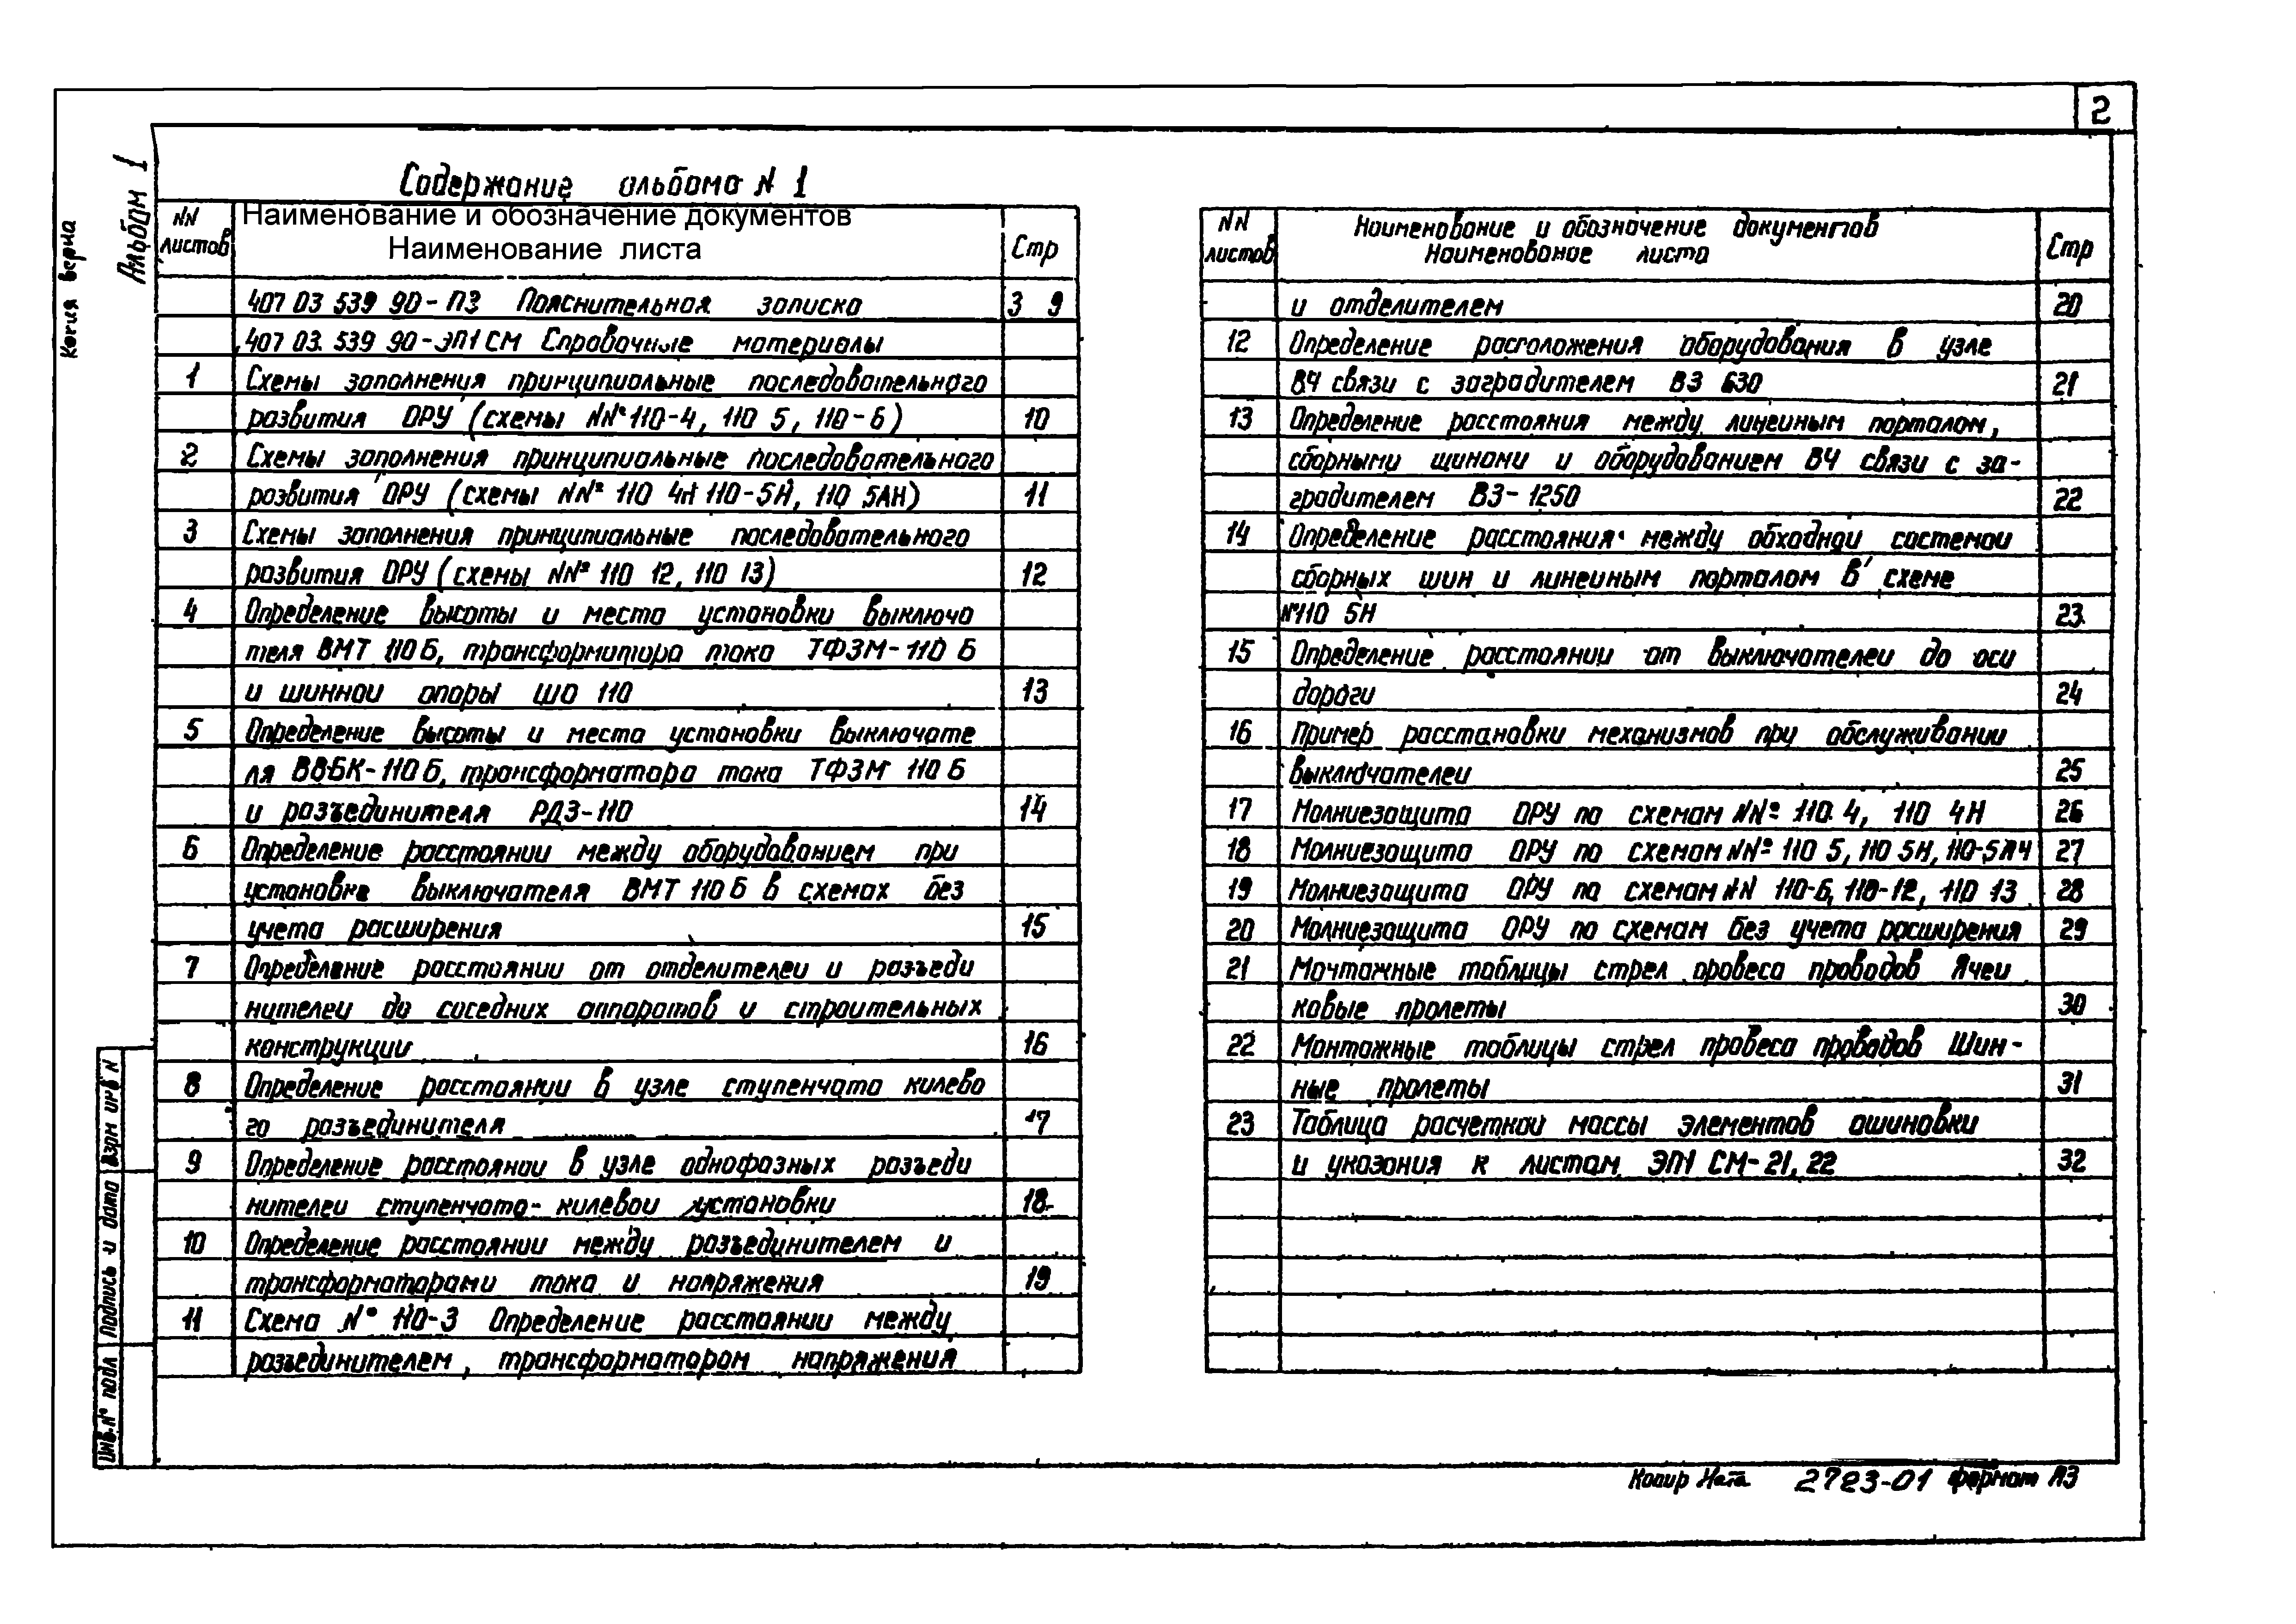 2
Копия верна
Альбом 1
Содержание альбома N 1
NN листов
Наименование и обозначение документов
Наименование листа
Стр
407 03 539 90-ПЗ Пояснительная записка 3 9
407 03. 539 90-ЭП1 СМ Справочные материалы
1 Схемы заполнения принципиальные последовательного
развития ОРУ (схемы NN° 110-4, 110 5, 110-6) 10
2 Схемы заполнения принципиальные последовательного
развития ОРУ (схемы NNº 110 4Н 110-5Н, 110 5АН) 11
3 Схемы заполнения принципиальные последовательного
развития ОРУ (схемы NNº 110 12, 110 13) 12
4 Определение высоты и места установки выключа
теля ВМТ 110 Б, трансформатора тока ТФЗМ-110 Б
и шиннои опоры ШО 110 13
5 Определение высоты и места установки выключате
ля ВВБК-110 Б, трансформатора тока ТФЗМ 110 Б
и разъединителя РДЗ-110 14
6 Определение расстоянии между оборудованием при
установке выключателя ВМТ 110 Б в схемах без
учета расширения 15
7 Определение расстоянии от отделителеи и разъеди
нителеи до соседних аппаратов и строительных
конструкции 16
8 Определение расстоянии в узле ступенчато килево
го разъединителя 17
9 Определение расстоянии в узле однофазных разъеди
нителеи ступенчато-килевои установки 18
10 Определение расстоянии между разъединителем и
трансформаторами тока и напряжения 19
11 Схема N° 110-3 Определение расстоянии между
разъединителем, трансформатором напряжения
NN листов
Наименование и обозначение документов
Наименование листа
Стр
и отделителем 20
12 Определение расположения оборудования в узле
ВЧ связи с заградителем ВЗ 630 21
13 Определение расстояния между линеиным порталом,
сборными шинами и оборудованием ВЧ связи с за-
градителем ВЗ-1250 22
14 Определение расстояния между обходнои системои
сборных шин и линеиным порталом в схеме
N°110 5Н 23
15 Определение расстоянии от выключателеи до оси
дороги 24
16 Пример расстановки механизмов при обслуживании
выключателеи 25
17 Молниезащита ОРУ по схемам NNº 110. 4, 110 4Н 26
18 Молниезащита ОРУ по схемам NNº 110 5, 110 5Н, 110-5АН 27
19 Молниезащита ОРУ по схемам NN 110-6, 110-12, 110 13 28
20 Молниезащита ОРУ по схемам без учета расширения 29
21 Монтажные таблицы стрел провеса проводов Ячеи
ковые пролеты 30
22 Монтажные таблицы стрел провеса проводов Шин-
ные пролеты 31
23 Таблица расчетнои массы элементов ошиновки
и указания к листам ЭП1 СМ-21, 22 32
Взам инв N
Подпись и дата
Инв.N° подл
Копир Ната 2723-01 формат А3